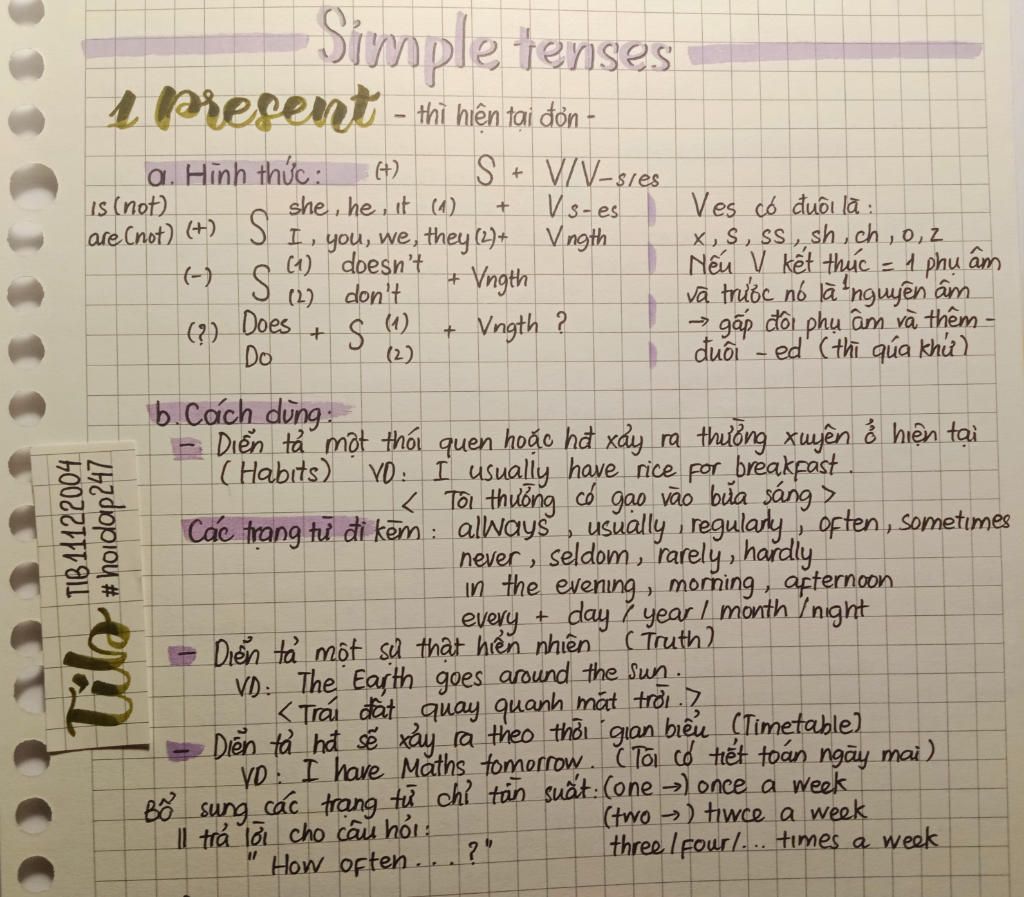 Simple tenses
1 Present - thì hiện tại đơn -
a. Hình thức: (+) S + V/V-s/es
is (not)
are (not) (+) S she, he, it (1) + V s-es
I, you, we, they (2) + Vngth
(-) S (1) doesn't + Vngth
(2) don't
(?) Does + S (1) + Vngth ?
Do (2)
V es có đuôi là:
x, s, ss, sh, ch, o, z
Nếu V kết thúc = 1 phụ âm
và trước nó là 1 nguyên âm
→ gấp đôi phụ âm và thêm -
đuôi - ed (thì qúa khứ)
b. Cách dùng:
- Diễn tả một thói quen hoặc hđ xảy ra thường xuyên ở hiện tại
(Habits) VD: I usually have rice for breakfast.
< Tôi thường có gạo vào bữa sáng >
Các trạng từ đi kèm: always, usually, regularly, often, sometimes
never, seldom, rarely, hardly
in the evening, morning, afternoon
every + day / year / month / night
- Diễn tả một sự thật hiển nhiên (Truth)
VD: The Earth goes around the sun.
< Trái đất quay quanh mặt trời. >
- Diễn tả hđ sẽ xảy ra theo thời gian biểu (Timetable)
VD: I have Maths tomorrow. (Tôi có tiết toán ngày mai)
Bổ sung các trạng từ chỉ tần suất: (one →) once a week
|| trả lời cho câu hỏi: (two →) tiwce a week
" How often . . . ? " three/four/... times a week
Tila
TIB11122004
#hoidap247